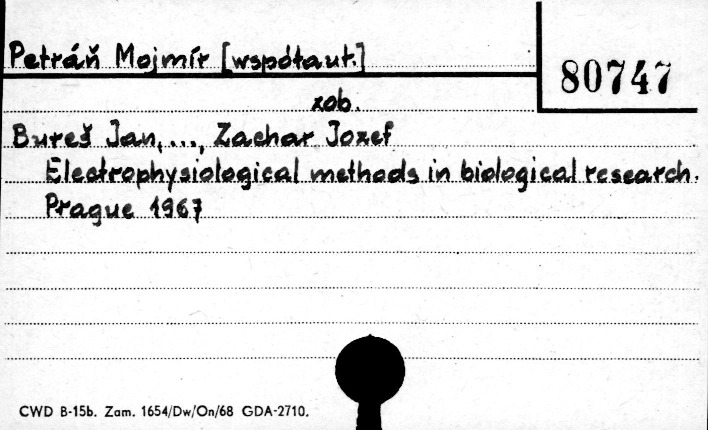 Petráň Mojmír [współaut.]
80747
zob.
Bureš Jan, ..., Zachar Jozef
Electrophysiological methods in biological research.
Prague 1967
CWD B-15b. Zam. 1654/Dw/On/68 GDA-2710.